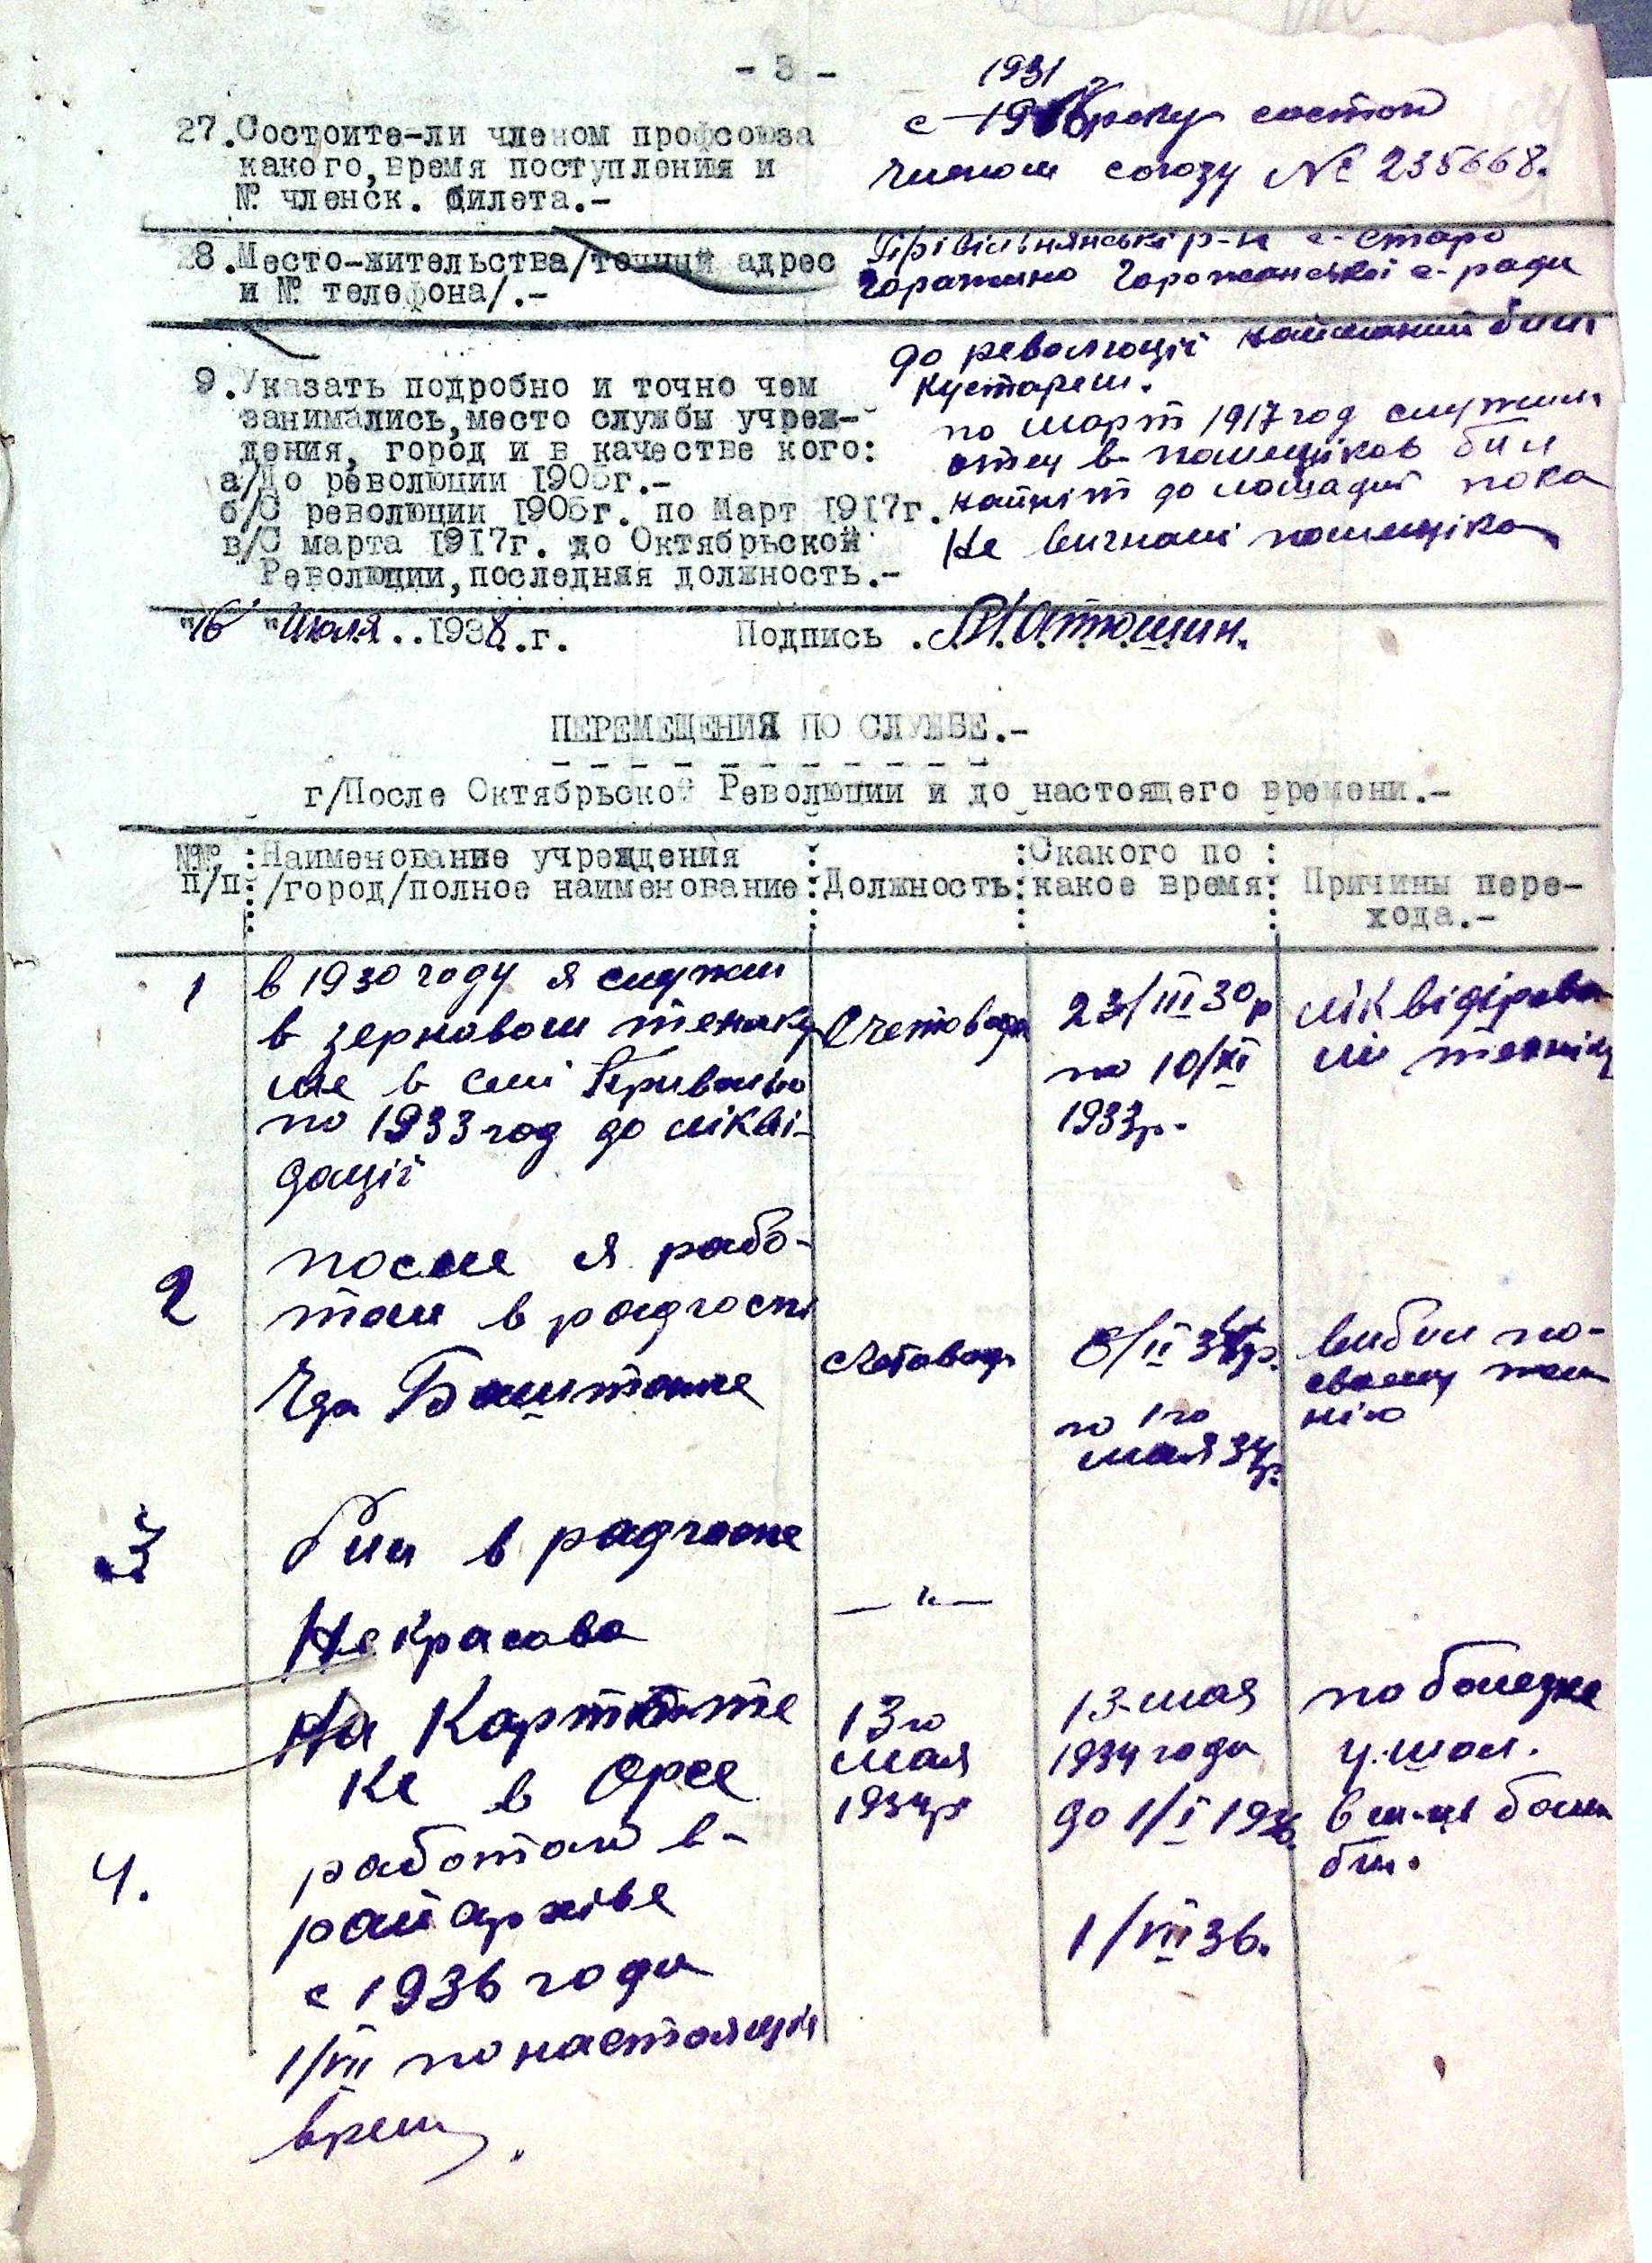 - 3 -
27. Состоите-ли членом профсоюза
какого, время поступления и
№ членск. билета.-
1931
с 1926 року состою
членом союзу № 235668.
28. Место-жительства/точный адрес
и № телефона/.-
р-н с-Старо
с-ради
9. Указать подробно и точно чем
занимались, место службы учреж-
дения, город и в качестве кого:
а/До революции 1905г.-
б/С революции 1905г. по Март 1917г.
в/С марта 1917г. до Октябрьской
Революции, последняя должность.-
до революції бил
кустарем.
по март 1917 год служил
отец в помещіков бил
до лошадий пока
не вигналі помещіка
"16" Июля..1938.г. Подпись
ПЕРЕМЕЩЕНИЯ ПО СЛУЖБЕ.-
г/После Октябрьской Революции и до настоящего времени.-
№№ п/п
Наименование учреждения
/город/полное наименование
Должность
Скакого по
какое время
Причины пере-
хода.-
1
в 1930 году я служил
в зерновом
ме в селі
по 1933 год до лікві-
дації
Счетовода
23/III 30р
по 10/XI
1933р.
лі
2
после я рабо-
тал в радгоспі
Баштанке
счетовод
8/II 34р.
по 1го
мая 34р.
вибил по-
своему жела
нію
3
бил в радгоспе
Некрасова
на Картоте
ке в Орсе
— " —
13го
мая
1934р
13-мая
1934 года
до 1/I 1936.
по болезне
бил.
4.
работаю в-
райархіве
с 1936 года
1/VIII по настоящи
время.
1/VIII 36.